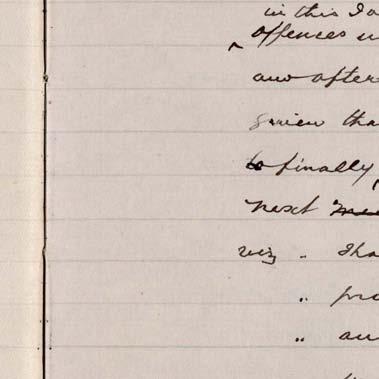 in this I
offences
and after
given tha
to finally
next
viz " Tha
" pro
" au